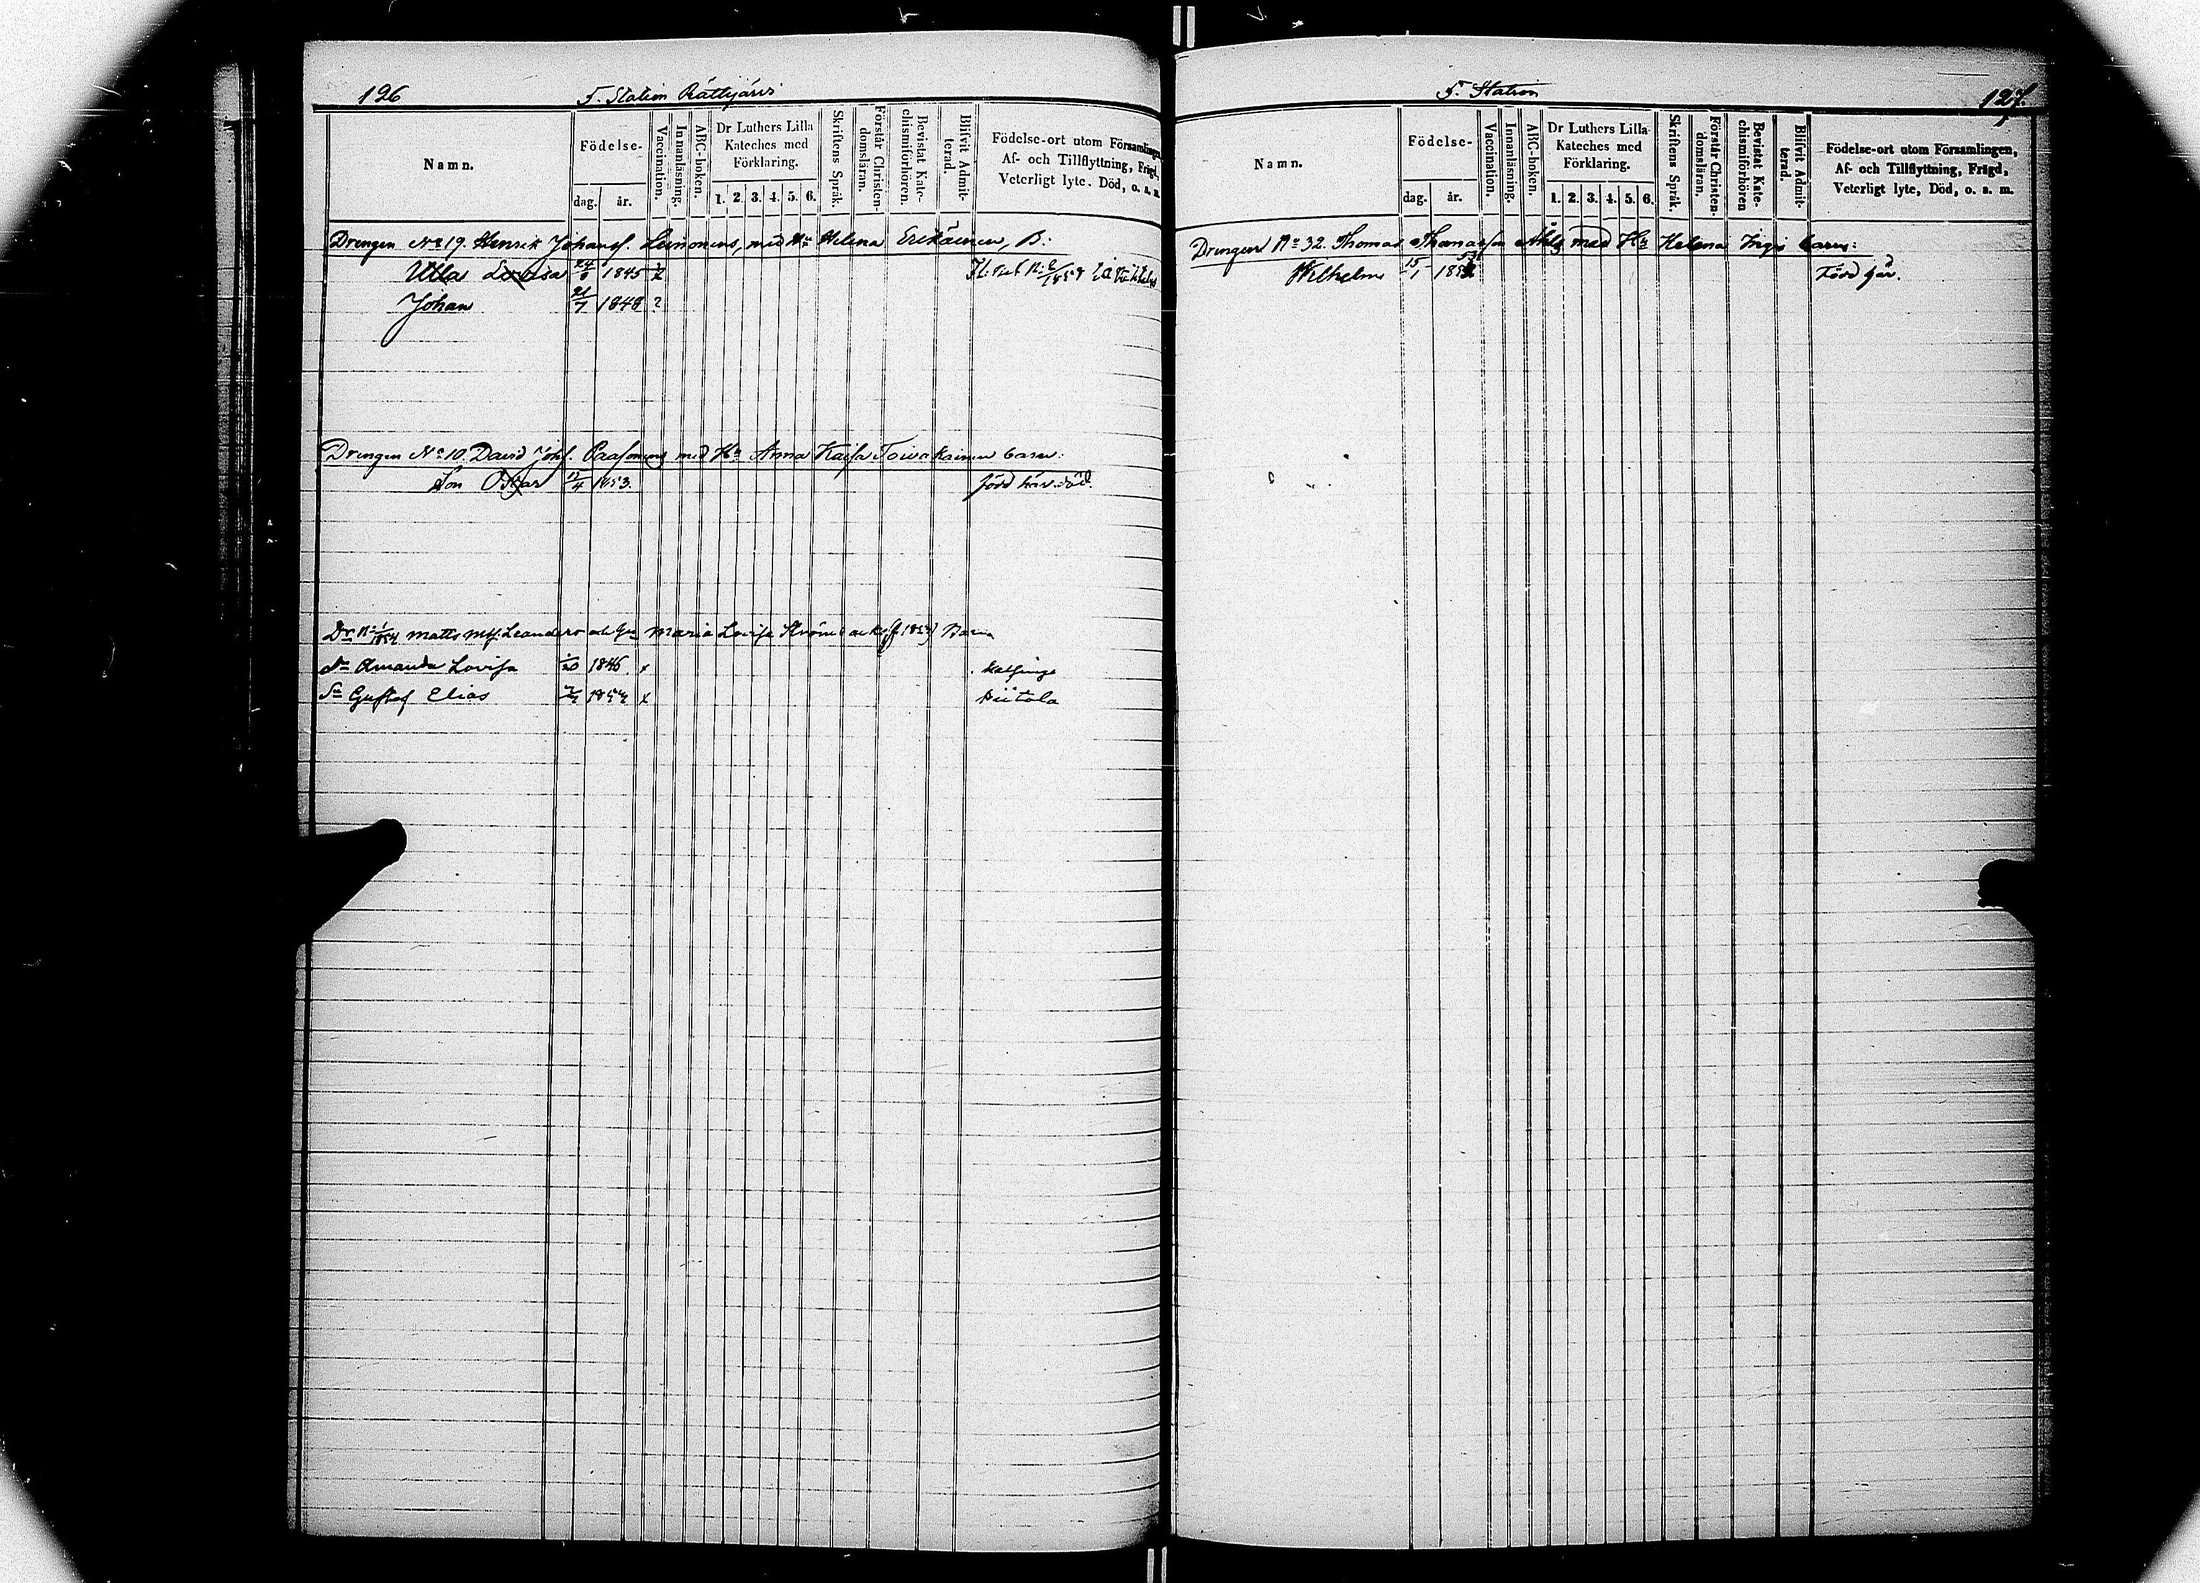 126
5. Station Rättijärvi
Namn.
Födelse-
dag. år.
Vaccination.
Innanläsning.
ABC-boken.
Dr Luthers Lilla
Kateches med
Förklaring.
1. 2. 3. 4. 5. 6.
Skriftens Språk.
Förstår Christen-
domsläran.
Bevistat Kate-
chismiförhören.
Blifvit Admit-
terad.
Födelse-ort utom Församlingen,
Af- och Tillflyttning, Frägd,
Veterligt lyte. Död, o. s. m.
Drengen No 19. Henrik Johansf. med Hu Helena B:
Ulla Lovisa 24/8 1845
Johan 21/7 1848 ?
Drengen No 10. David Johf. med Hu Anna Kaisa Toivakainen barn:
Son Oskar 17/4 1853. född här. död.
Matts Leanders Maria Lovisa Barn
Amanda Lovisa 1846 x
Sn Gustaf Elias x Hiitola
5. Station
127.
Namn.
Födelse-
dag. år.
Vaccination.
Innanläsning.
ABC-boken.
Dr Luthers Lilla
Kateches med
Förklaring.
1. 2. 3. 4. 5. 6.
Skriftens Språk.
Förstår Christen-
domsläran.
Bevistat Kate-
chismiförhören
Blifvit Admit-
terad.
Födelse-ort utom Församlingen,
Af- och Tillflyttning, Frägd,
Veterligt lyte, Död, o. s. m.
Drengen No 32. Thomas Thomasson med Hu Helena barn:
Wilhelm 15/1 Född här.